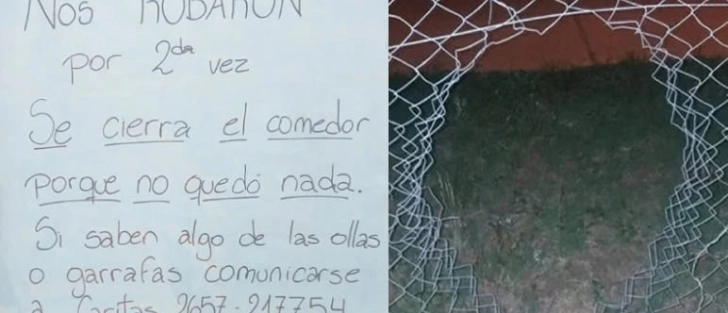 Nos ROBARON
por 2da vez
Se cierra el comedor
porque no quedó nada.
Si saben algo de las ollas
o garrafas comunicarse
a Caritas 2657-217754